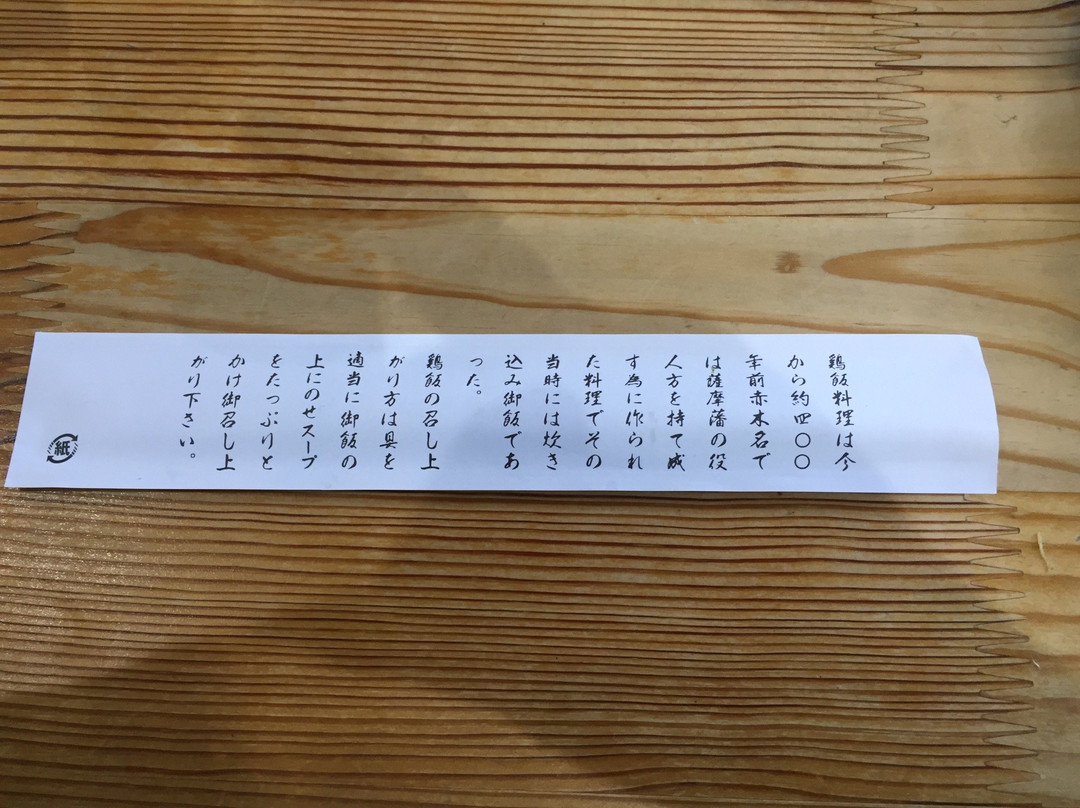 鶏飯料理は今
から約四〇〇
年前赤木名で
は薩摩藩の役
人方を持て成
す為に作られ
た料理でその
当時には炊き
込み御飯であ
った。
鶏飯の召し上
がり方は具を
適当に御飯の
上にのせスープ
をたっぷりと
かけ御召し上
がり下さい。
紙